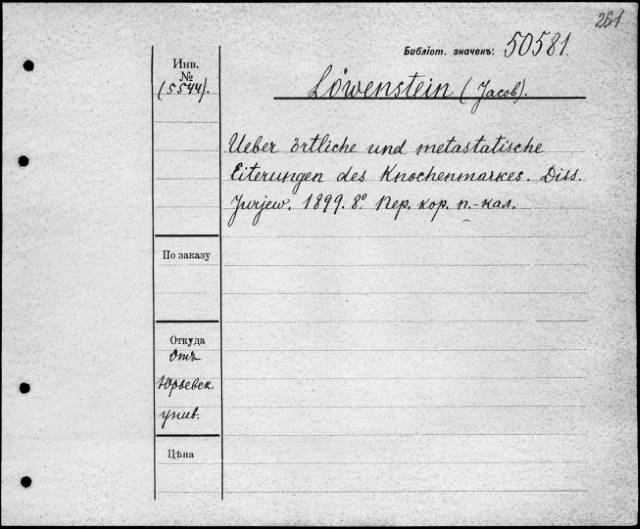 261
Библіот. значенъ: 50581.
Инв.
№
(5544).
Löwenstein (Jacob).
Ueber örtliche und metastatische
Eiterungen des Knochenmarkes. Diss.
Jurjew. 1899. 8º Пер. кор. п.-кал.
По заказу
Откуда
Отъ
Юрьевск
унив.
Цѣна